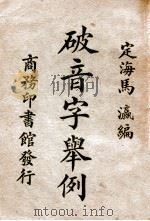 定海馬瀛編
破音字舉例
商務印書館發行